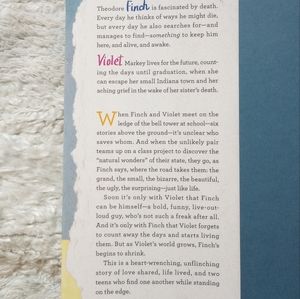 Theodore Finch is fascinated by death.
Every day he thinks of ways he might die,
but every day he also searches for—and
manages to find—something to keep him
here, and alive, and awake.
Violet Markey lives for the future, count-
ing the days until graduation, when she
can escape her small Indiana town and her
aching grief in the wake of her sister's death.
When Finch and Violet meet on the
ledge of the bell tower at school—six
stories above the ground—it's unclear who
saves whom. And when the unlikely pair
teams up on a class project to discover the
"natural wonders" of their state, they go, as
Finch says, where the road takes them: the
grand, the small, the bizarre, the beautiful,
the ugly, the surprising—just like life.
Soon it's only with Violet that Finch
can be himself—a bold, funny, live-out-
loud guy, who's not such a freak after all.
And it's only with Finch that Violet forgets
to count away the days and starts living
them. But as Violet's world grows, Finch's
begins to shrink.
This is a heart-wrenching, unflinching
story of love shared, life lived, and two
teens who find one another while standing
on the edge.